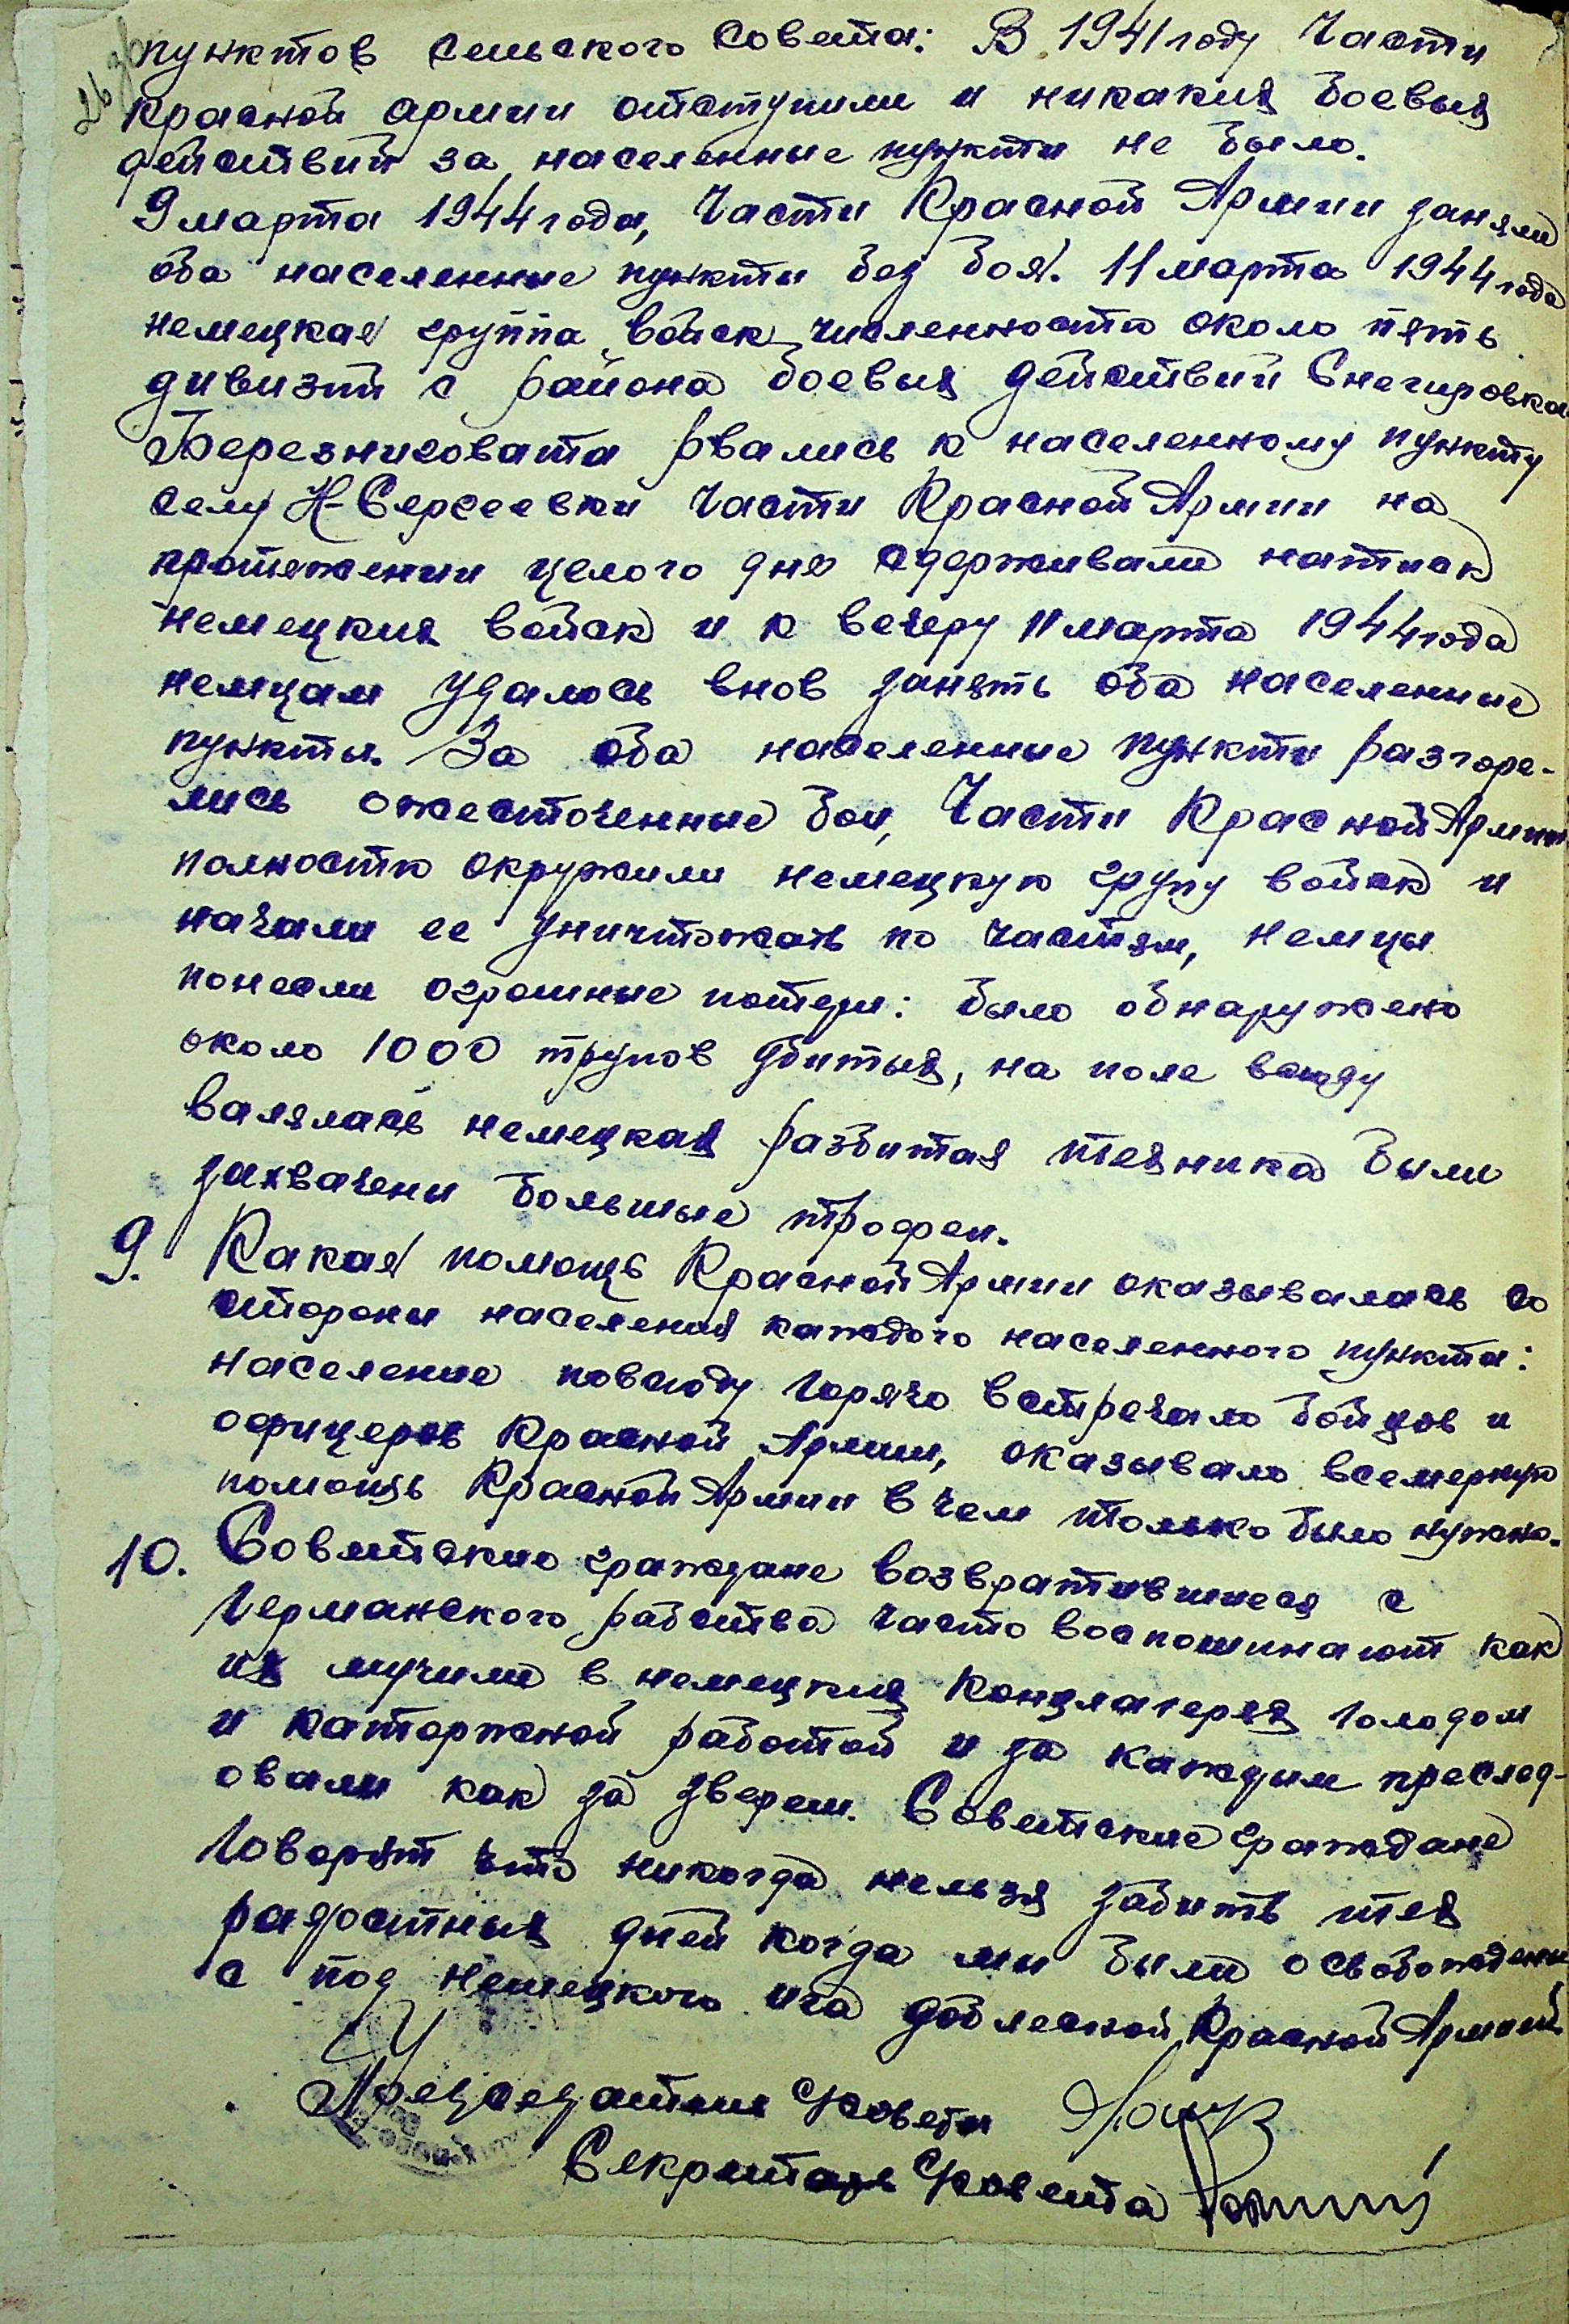 26 зв
пунктов сельского совета: В 1941 году Части
красной армии отступили и никаких боевых
действий за населенные пункти не было.
9 марта 1944 года, Части Красной Армии заняли
оба населенние пункти без боя. 11 марта 1944 года
немецкая группа войск численностю около пять
дивизий с района боевых действий Снегировка
Березниговата рвались к населенному пункту
селу Н-Сергеевки Части Красной Армии на
протяжении целого дня сдерживали натиск
немецких войск и к вечеру 11 марта 1944 года
немцам удалось внов занять оба населенные
пункты. За оба населенние пункти разгоре-
лись ожесточенные бои, Части Красной Армии
полностю окружили немецкую групу войск и
начали ее уничтожать по частям, немцы
понесли огромние потери: было обнаружено
около 1000 трупов убитых, на поле всюду
валялась немецкая разбитая техника были
захвачени большые трофеи.
9. Какая помощь Красной Армии оказывалась со
стороны населения каждого населенного пункта:
население повсюду горячо встречало бойцов и
офицеров Красной Армии, оказывало всемерную
помощь Красной Армии в чем только было нужно.
10. Совитские граждане возвратившиеся с
Германского рабства часто воспоминают как
их мучили в немецких концлагерях голодом
и каторжной работой и за каждим преслед-
овали как за зверем. Советские граждане
говорят что никогда нельзя забить тех
радостных дней когда ми были освобождени
с под немецкого ига доблесной Красной Армией
Председатель с/совета
Секретарь с/совета